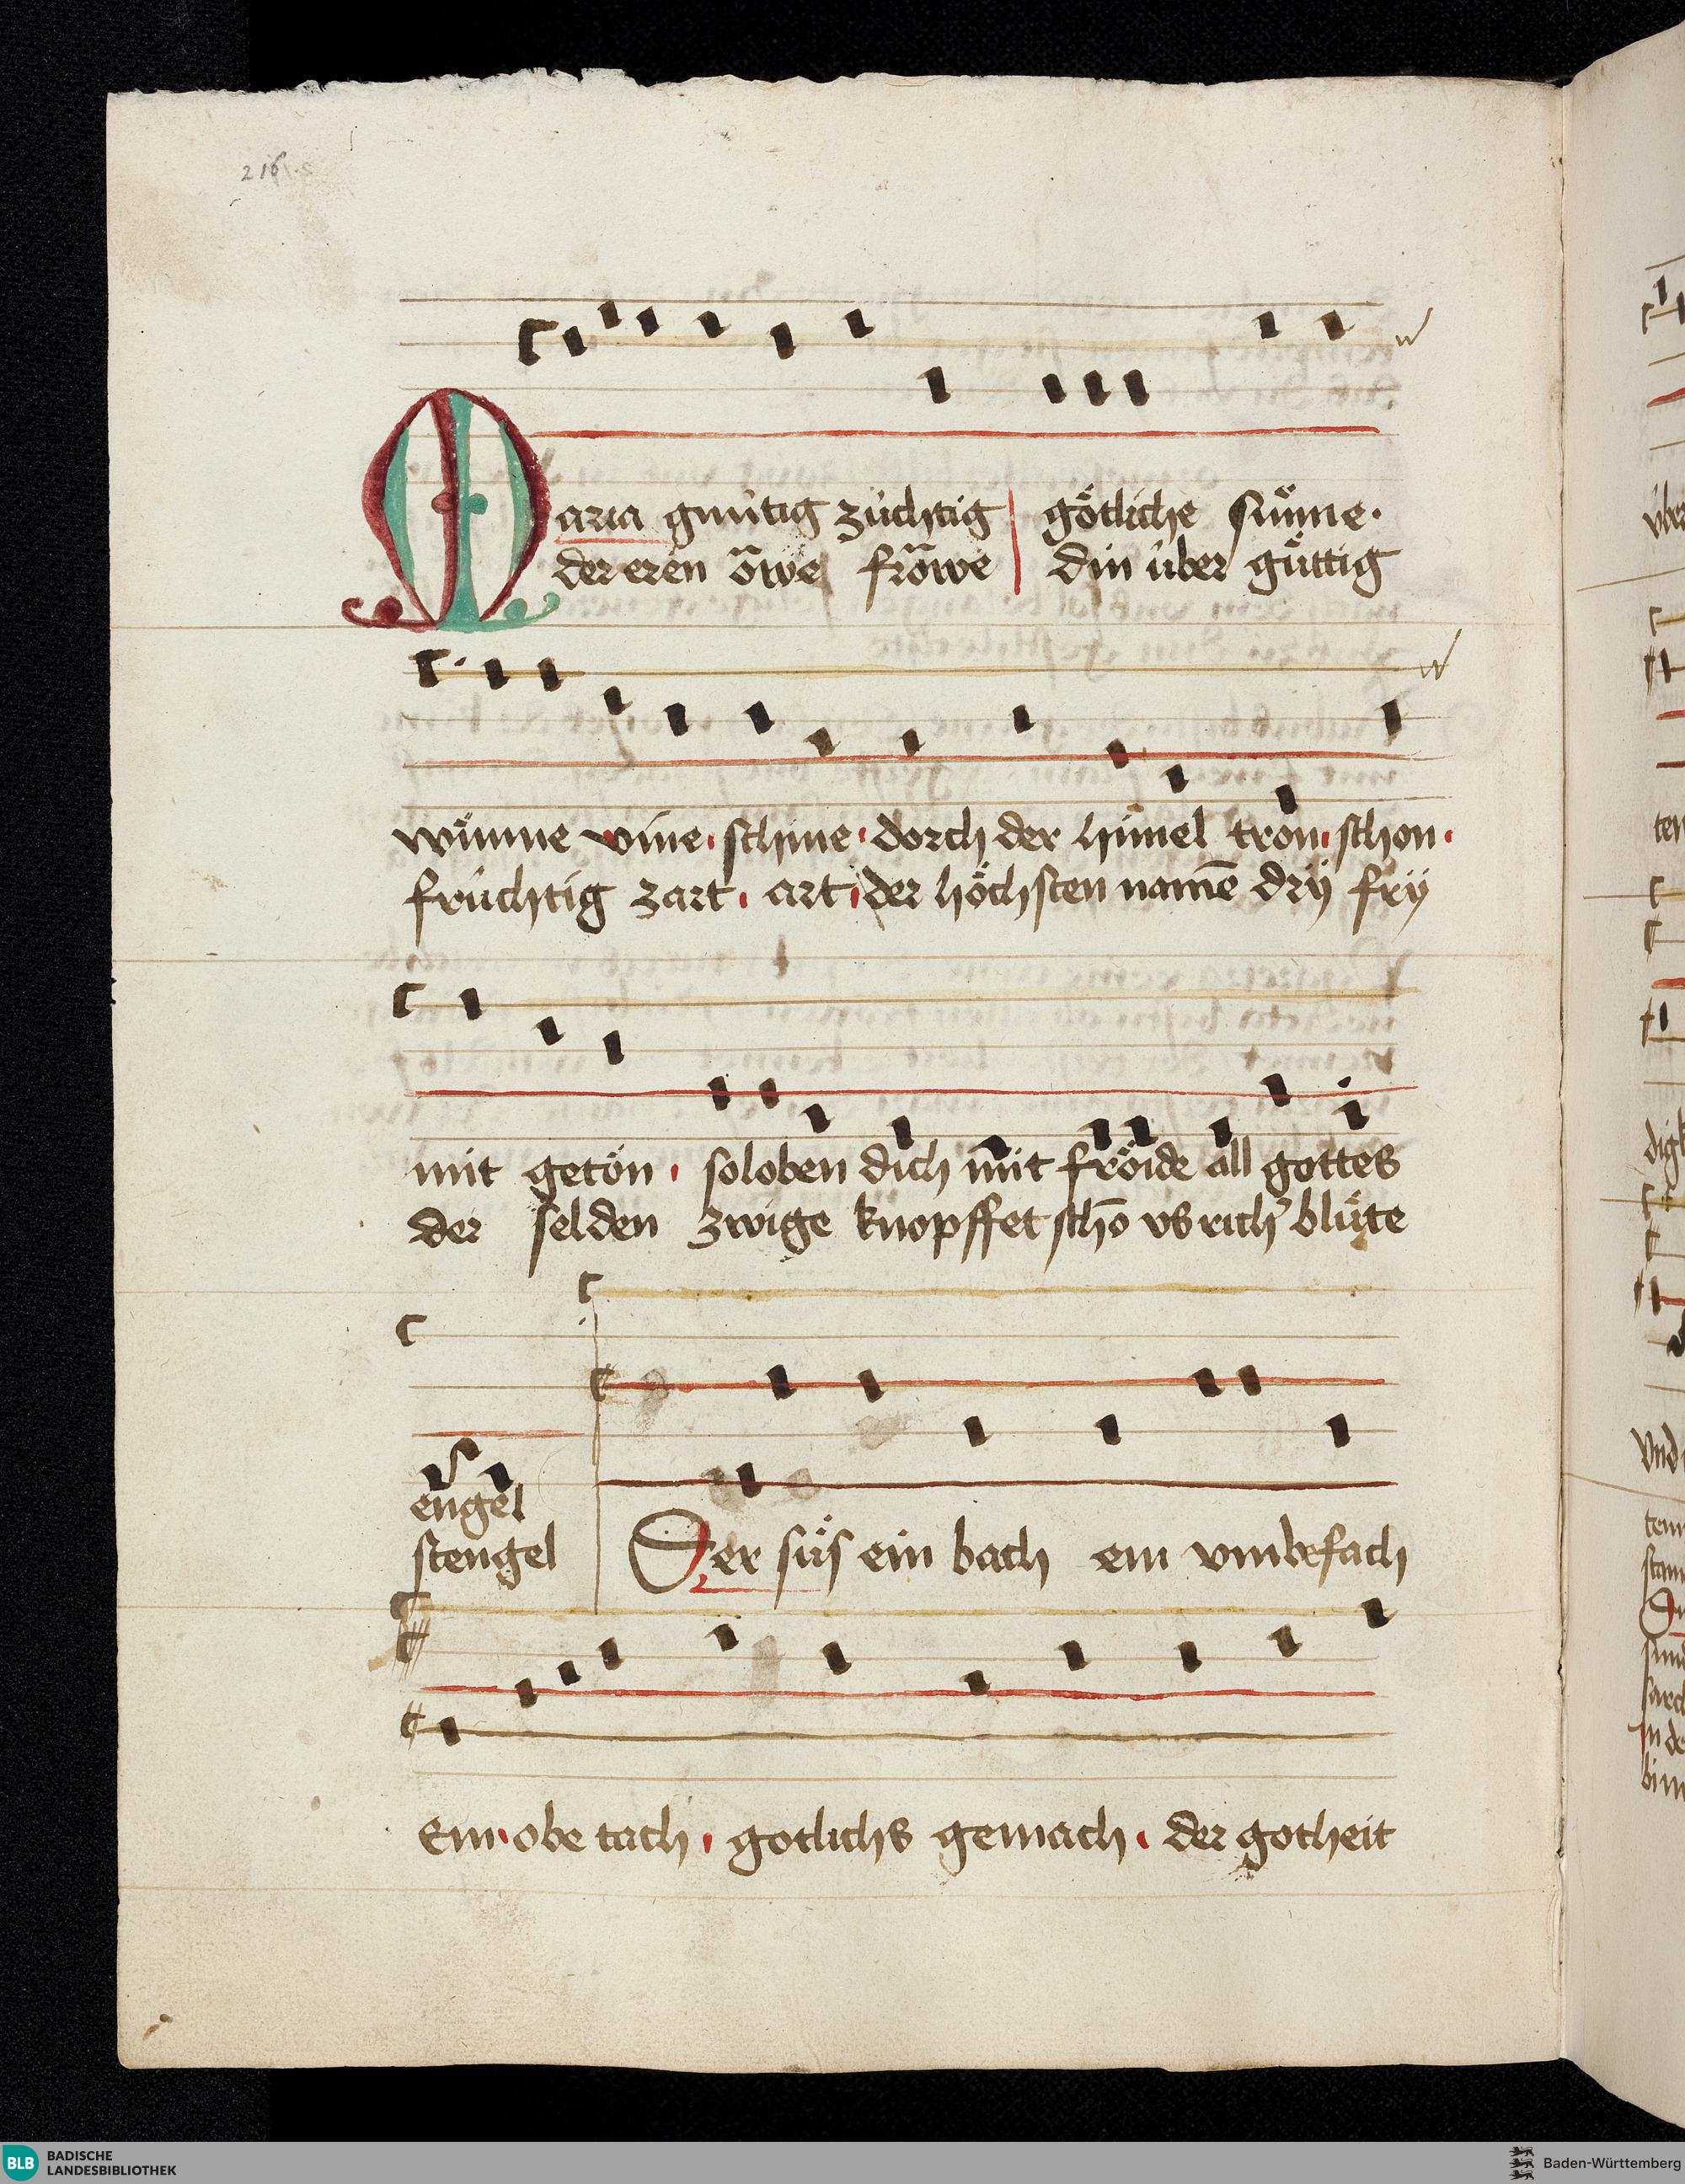 216
Maria gmu̍tig zu̍chtig götliche su̍me·
der eren o̍we fro̍we din u̍ber gu̍ttig
wu̍nne vine · schine · dorch der himel tron · schon ·
fru̍chtig zart · art · der höchsten namē drÿ frÿ
mit getön · so loben dich mit fröide all gottes
der selden zwige knopffet schō vs rich' blu̍te
engel
stengel
Der su̍s ein bach ein vmbefach
Ein · obe tach · gotlichs gemach · der gotheit
BLB BADISCHE
LANDESBIBLIOTHEK
Baden-Württemberg